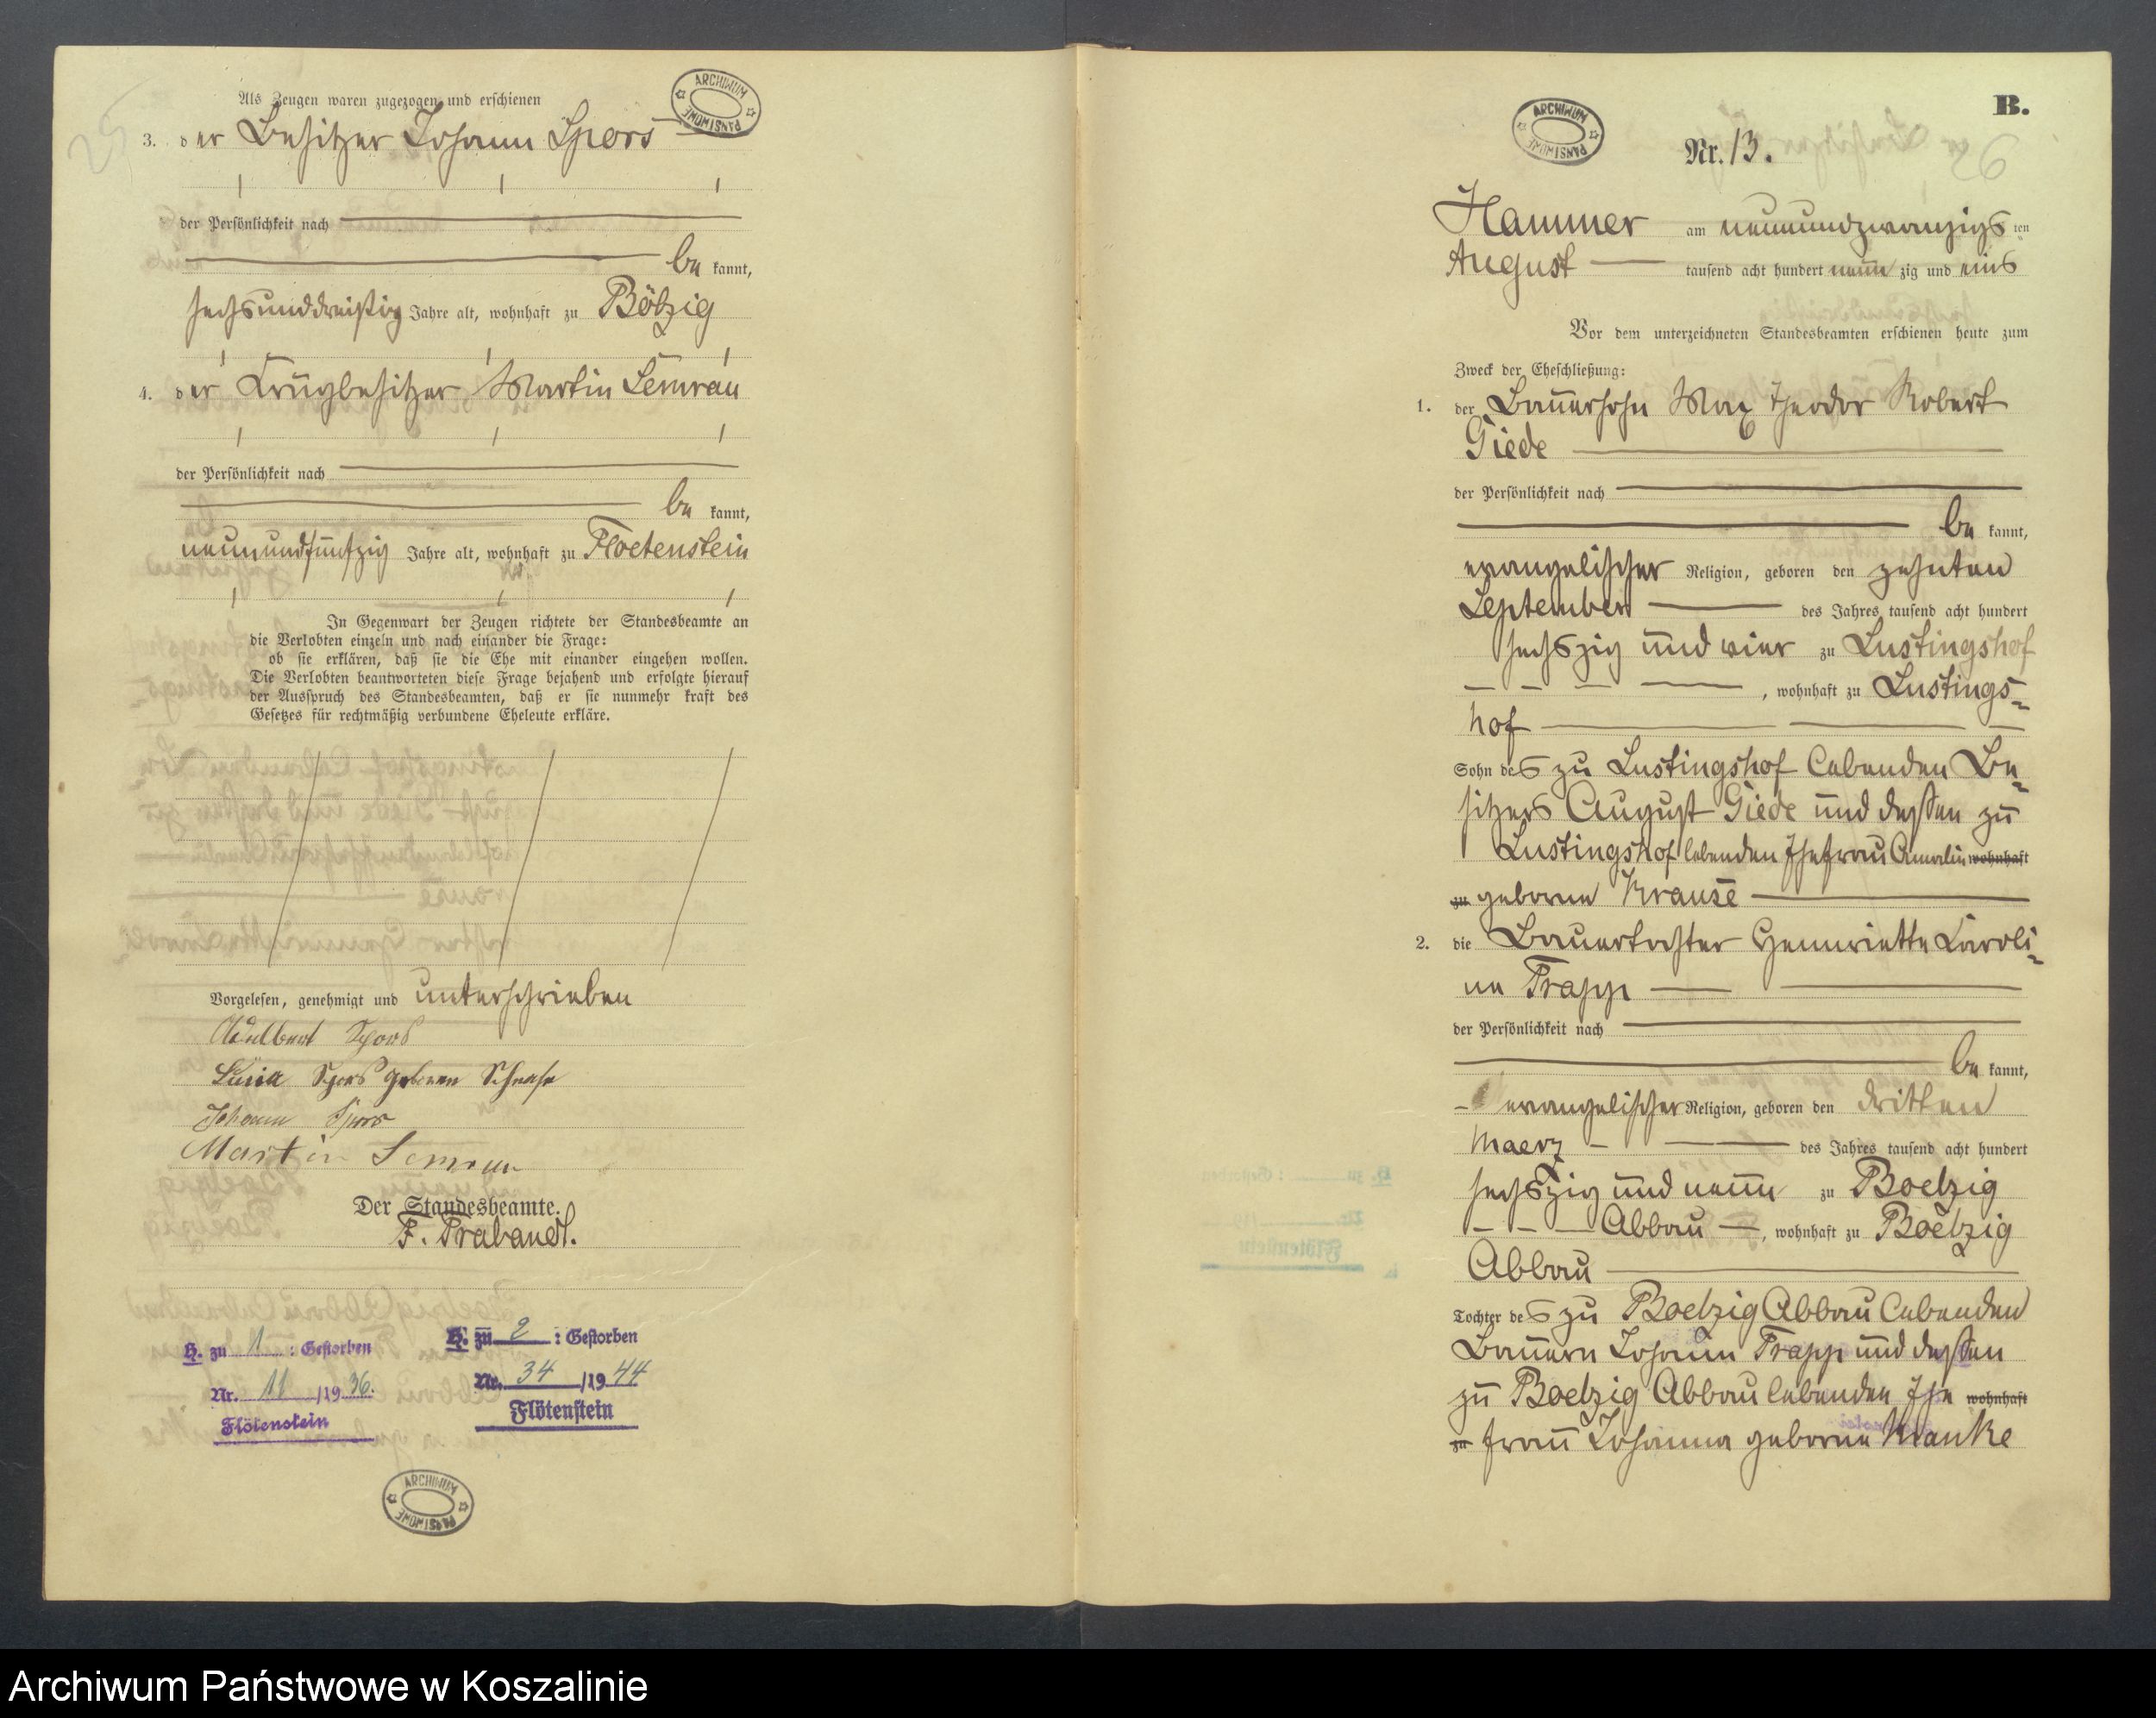 Als Zeugen waren zugezogen und erschienen
3. der Besitzer Johann Spors
der Persönlichkeit nach
be kannt,
sechsunddreißig Jahre alt, wohnhaft zu Bölzig
4. der Krugbesitzer Martin Semrau
der Persönlichkeit nach
be kannt,
neunundfünfzig Jahre alt, wohnhaft zu Floetenstein
In Gegenwart der Zeugen richtete der Standesbeamte an
die Verlobten einzeln und nach einander die Frage:
ob sie erklären, daß sie die Ehe mit einander eingehen wollen.
Die Verlobten beantworteten diese Frage bejahend und erfolgte hierauf
der Ausspruch des Standesbeamten, daß er sie nunmehr kraft des
Gesetzes für rechtmäßig verbundene Eheleute erkläre.
Vorgelesen, genehmigt und unterschrieben
Adalbert Spors
Spors geborene
Johann Spors
Martin Semrau
Der Standesbeamte.
F. Prabandt.
H. zu 1 : Gestorben
Nr. 11 /19 36.
Flötenstein
H. zu 2 : Gestorben
Nr. 34 /19 44
Flötenstein
ARCHIWUM PAŃSTWOWE
B.
Nr. 13.
Hammer am neunundzwanzigs ten
August tausend acht hundert neun zig und eins
Vor dem unterzeichneten Standesbeamten erschienen heute zum
Zweck der Eheschließung:
1. der Bauersohn Max Theodor Robert
Giede
der Persönlichkeit nach
be kannt,
evangelischer Religion, geboren den zehnten
September des Jahres tausend acht hundert
sechszig und vier zu Lustingshof
, wohnhaft zu Lustings-
hof
Sohn des zu Lustingshof lebenden Be-
sitzers August Giede und dessen zu
Lustingshof lebenden Ehefrau Amalie wohnhaft
zu geborne Krause
2. die Bauertochter Hennriette Karoli-
ne Trapp
der Persönlichkeit nach
be kannt,
evangelischer Religion, geboren den dritten
Maerz des Jahres tausend acht hundert
sechszig und neun zu Boelzig
Abbau, wohnhaft zu Boelzig
Abbau
Tochter des zu Boelzig Abbau lebenden
Bauern Johann Trapp und dessen
zu Boelzig Abbau lebenden Ehe wohnhaft
zu frau Johanna geborne Manke
Archiwum Państwowe w Koszalinie